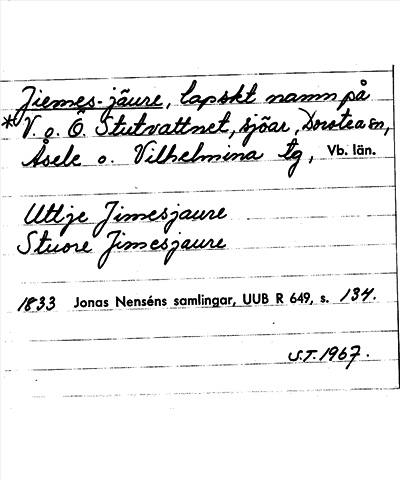 Jiemes-jäure, lapskt namn på
*V. o. Ö. Stutvattnet, sjöar, Dorotea sn,
Åsele o. Vilhelmina tg, Vb. län.
Uttje Jimesjaure
Stuore Jimesjaure
1833 Jonas Nenséns samlingar, UUB R 649, s. 134.
U.T. 1967.